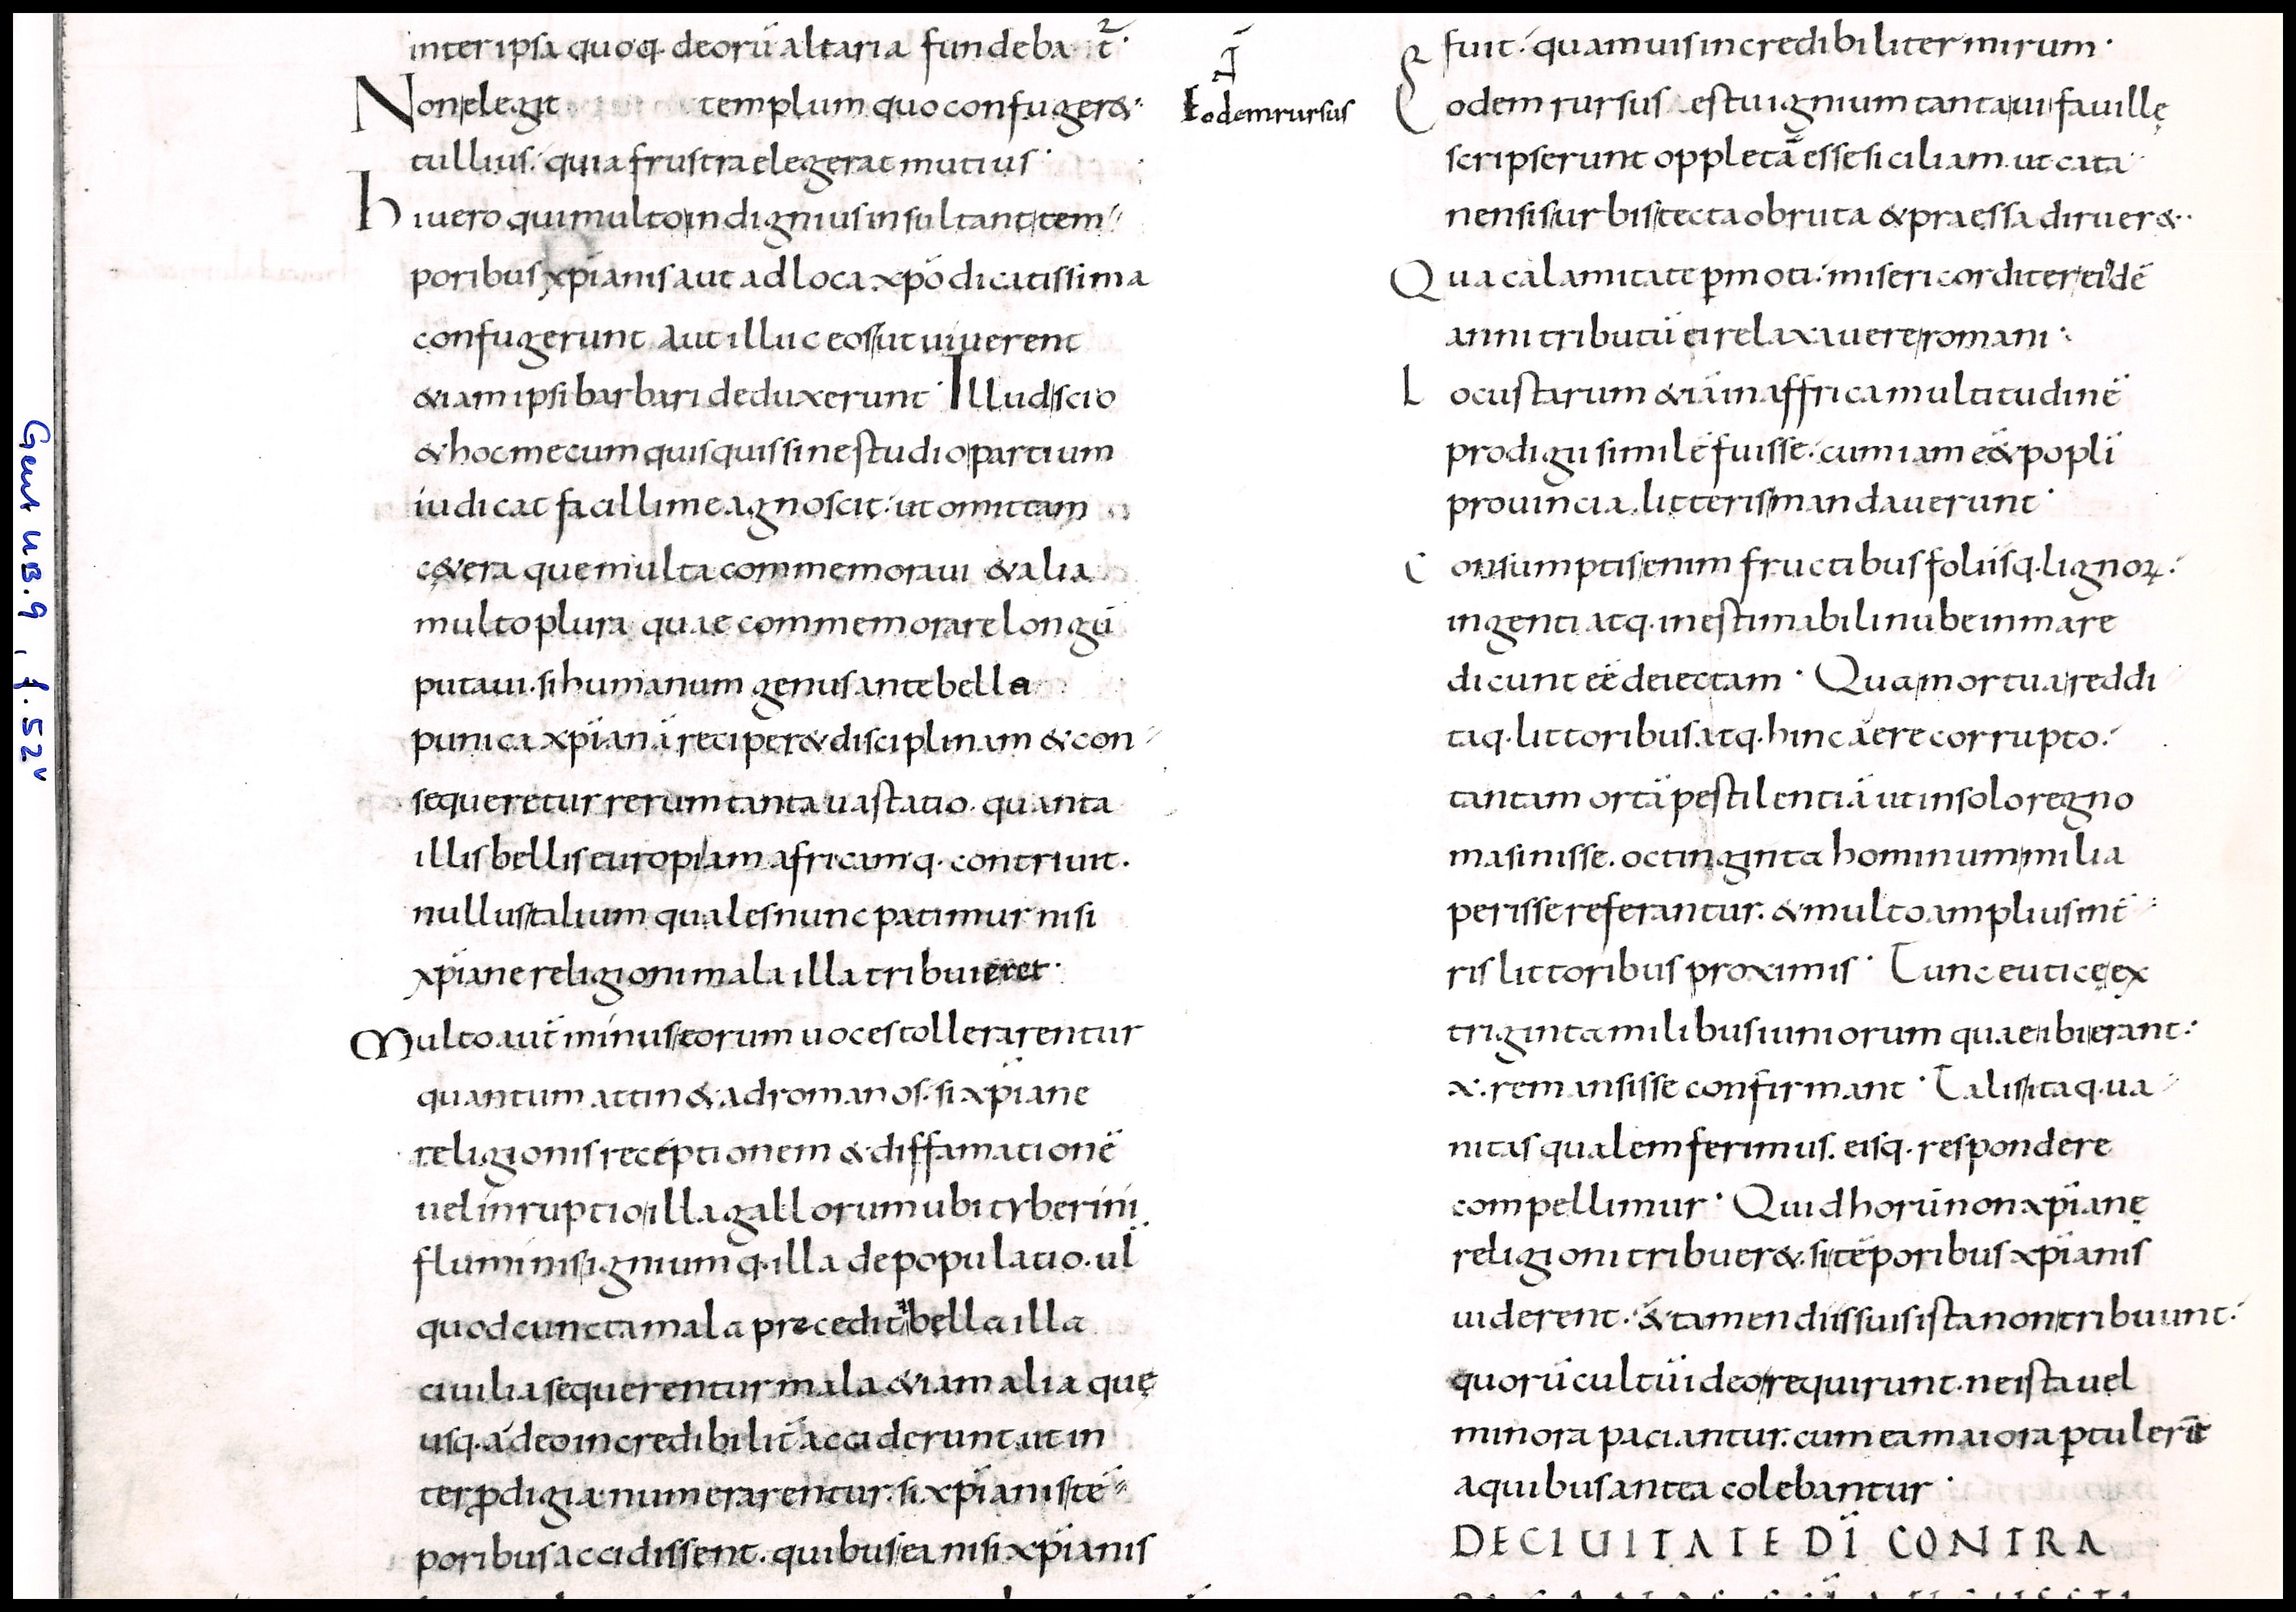 inter ipsa quoq. deorū altaria fundebat̄·
Non elegit templum quo confuger&·
tullius· quia frustra elegerat mutius·
hi uero qui multo indignius insultant tem
poribus xp̄ianis aut ad loca xp̄o dicatissima
confugerunt aut illuc eos ut uiuerent
&iam ipsi barbari deduxerunt· Illud scio
& hoc mecum quisquis sine studio partium
iudicat facillime agnoscit· ut omittam
c&era que multa commemoraui & alia
multo plura quae commemorare longū
putaui· si humanum genus ante bella
punica xp̄ianā reciper& disciplinam & con
sequeretur rerum tanta uastatio· quanta
illis bellis europam africamq. contriuit.
nullus talium quales nunc patimur nisi
xp̄iane religioni mala illa tribuieret·
Multo aut̄ minus eorum uoces tollerarentur
quantum attin& ad romanos· si xp̄iane
religionis receptionem & diffamationē
uel inruptio illa gallorum ubi tyberini
fluminis ignium q. illa depopulatio· ul̄
quod cuncta mala precedit bella illa
ciuilia sequerentur mala &iam alia quę
usq. adeo incredibilit̄ acciderunt ut in
ter p̄digia numerarentur· si xp̄ianis tē
poribus accidissent· quibus ea nisi xp̄ianis
Eodem rursus
fuit· quamuis incredibiliter mirum·
Eodem rursus estu ignium tanta ui fauillę
scripserunt oppletā esse siciliam ut cata
nensis urbis tecta obruta & praessa diruer&·
Qua calamitate p̄moti· misericorditer eidē
anni tributū ei relaxauere romani·
Locustarum &iā in affrica multitudinē
prodigii similē fuisse· cum iam eēt popl̄i
prouincia litteris mandauerunt·
Consumptis enim fructibus foliisq. lignoꝝ·
ingenti atq. inestimabili nube in mare
dicunt eē deiectam· Qua mortua reddi
taq. littoribus atq. hinc aere corrupto·
tantam ortā pestilentiā ut in solo regno
masinisse. octinginta hominum milia
perisse referantur· & multo amplius int̄
ris littoribus proximis· Tunc euticę ex
triginta milibus iuniorum quae ibi erant·
x· remansisse confirmant· Talis itaq. ua
nitas qualem ferimus. eisq. respondere
compellimur· Quid horū non xp̄ianę
religioni tribuer&· si tēporibus xp̄ianis
uiderent· & tamen diis suis ista non tribuunt·
quorū cultū ideo requirunt· ne ista uel
minora paciantur· cum ea maiora p̄tulerīt
a quibus antea colebantur·
DECIUITATE DI CONTRA